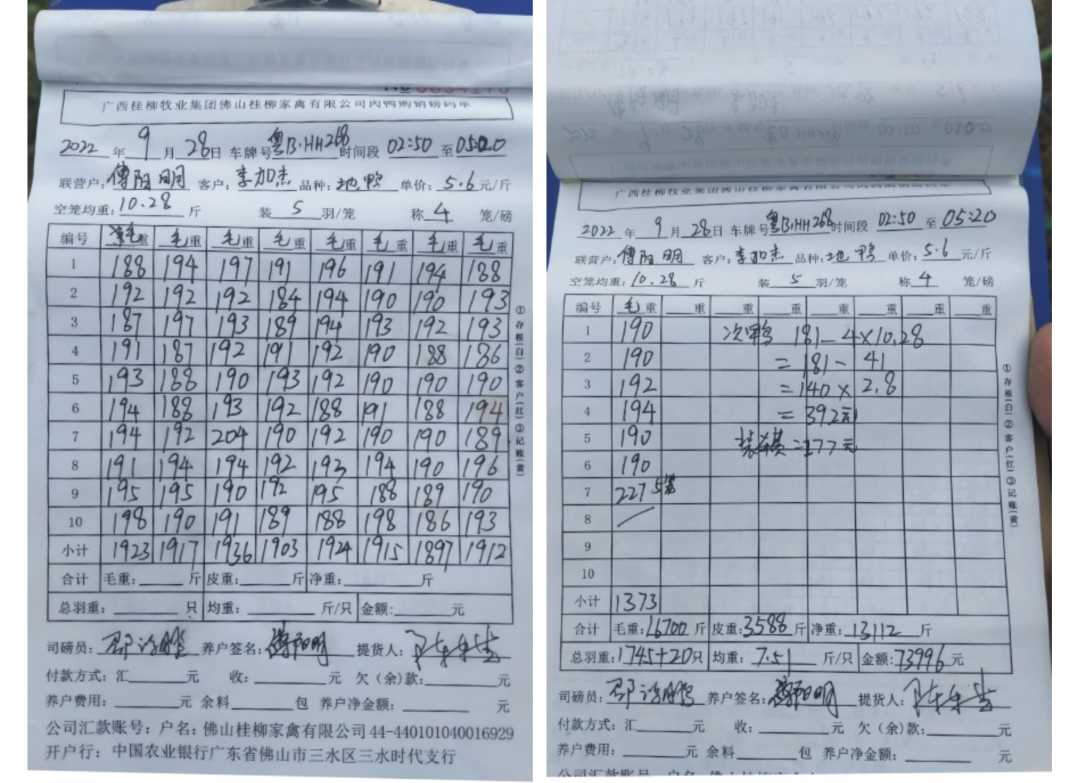 广西桂柳牧业集团佛山桂柳家禽有限公司肉鸭购销磅码单
2022 年 9 月 28 日 车牌号 粤B·HH268 时间段 02:50 至 0520
联营户: 傅阳明 客户: 李加杰 品种: 地鸭 单价: 5.6 元/斤
空笼均重: 10.28 斤 装 5 羽/笼 称 4 笼/磅
编号 毛重 毛重 毛重 毛重 毛重 毛重 毛重 毛重
1 188 194 197 191 196 191 194 188
2 192 192 192 184 194 190 190 193
3 187 197 193 189 194 193 192 193
4 191 187 192 191 192 190 188 186
5 193 188 190 193 192 190 190 190
6 194 188 193 192 188 191 188 194
7 194 192 204 190 192 190 190 189
8 191 194 194 192 193 194 190 196
9 195 195 190 192 195 188 189 190
10 198 190 191 189 188 198 186 193
小计 1923 1917 1936 1903 1924 1915 1897 1912
合计 毛重: 斤 皮重: 斤 净重: 斤
总羽重: 只 均重: 斤/只 金额: 元
司磅员: 养户签名: 傅阳明 提货人:
付款方式: 汇 元 收: 元 欠(余)款: 元
养户费用: 元 余料 包 养户净金额: 元
公司汇款账号: 户名: 佛山桂柳家禽有限公司 44-440101040016929
开户行: 中国农业银行广东省佛山市三水区三水时代支行
①存根(白)②客户(红)③记账(黄)
2022 年 9 月 28 日 车牌号 粤B·HH268 时间段 02:50 至 05:20
联营户: 傅阳明 客户: 李加杰 品种: 地鸭 单价: 5.6 元/斤
空笼均重: 10.28 斤 装 5 羽/笼 称 4 笼/磅
编号 毛重 重 重 重 重 重 重 重
1 190 次鸭 181-4×10.28
2 190 =181-41
3 192 =140×2.8
4 194 =392元
5 190 =177元
6 190
7 227 5笼
8
9
10
小计 1373
合计 毛重: 16700 斤 皮重: 3588 斤 净重: 13112 斤
总羽重: 1745+20 只 均重: 7.51 斤/只 金额: 73996 元
司磅员: 养户签名: 傅阳明 提货人:
付款方式: 汇 元 收: 元 欠(余)款: 元
养户费用: 元 余料 包 养户净金额: 元
①存根(白)②客户(红)③记账(黄)